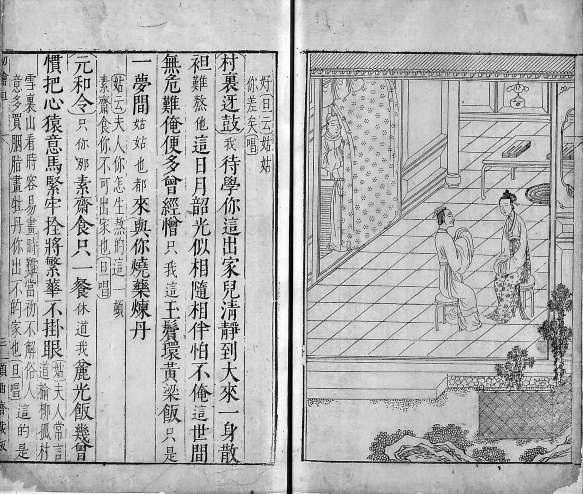 好旦云姑姑
你差矣唱
村裏迓鼓我待學你這出家兒清靜到大來一身散
袒難熬他這日月韶光似相隨相伴怕不俺這世間
無危難俺便多曾經憎只我這玉鬢環黃粱飯只是
一夢間姑姑也都來與你燒藥煉丹
姑云夫人你怎生熬的這一
素齋食你不可出家也旦唱
元和令只你那素齋食只一餐休道我麄光飯幾曾
慣把心猿意馬緊牢拴將繁華不掛眼
姑夫人常言
道榆柳孤村
雪裏山看時容易畫時難當初不解俗人
意多買胭脂畫牡丹你出不的家也旦唱
這的是
三
顧曲齋藏板